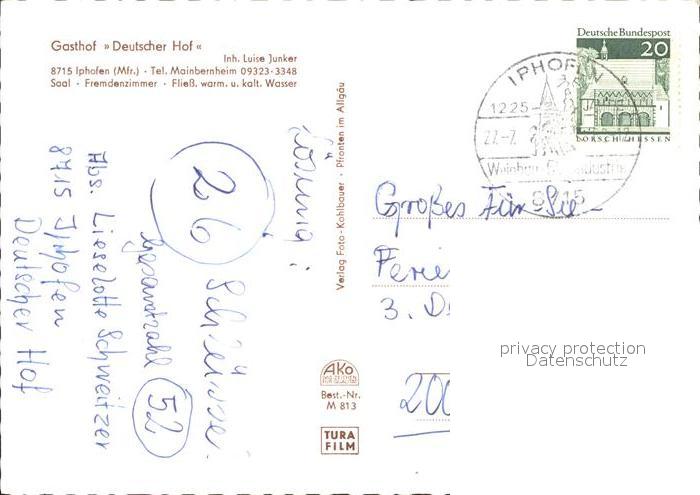 Gasthof »Deutscher Hof«
Inh. Luise Junker
8715 Iphofen (Mfr.) · Tel. Mainbernheim 09323-3348
Saal · Fremdenzimmer · Fließ. warm. u. kalt. Wasser
Lösung:
26 Schlüssel
Gesamtzahl 52
Abs. Lieselotte Schweitzer
8715 Iphofen
Deutscher Hof
Verlag Foto-Kohlbauer · Pfronten im Allgäu
AKO
Best.-Nr.
M 813
TURA
FILM
Deutsche Bundespost
20
LORSCH/HESSEN
IPHOFEN
8715
Großes Für Sie-
Ferie
3. D
200
privacy protection
Datenschutz